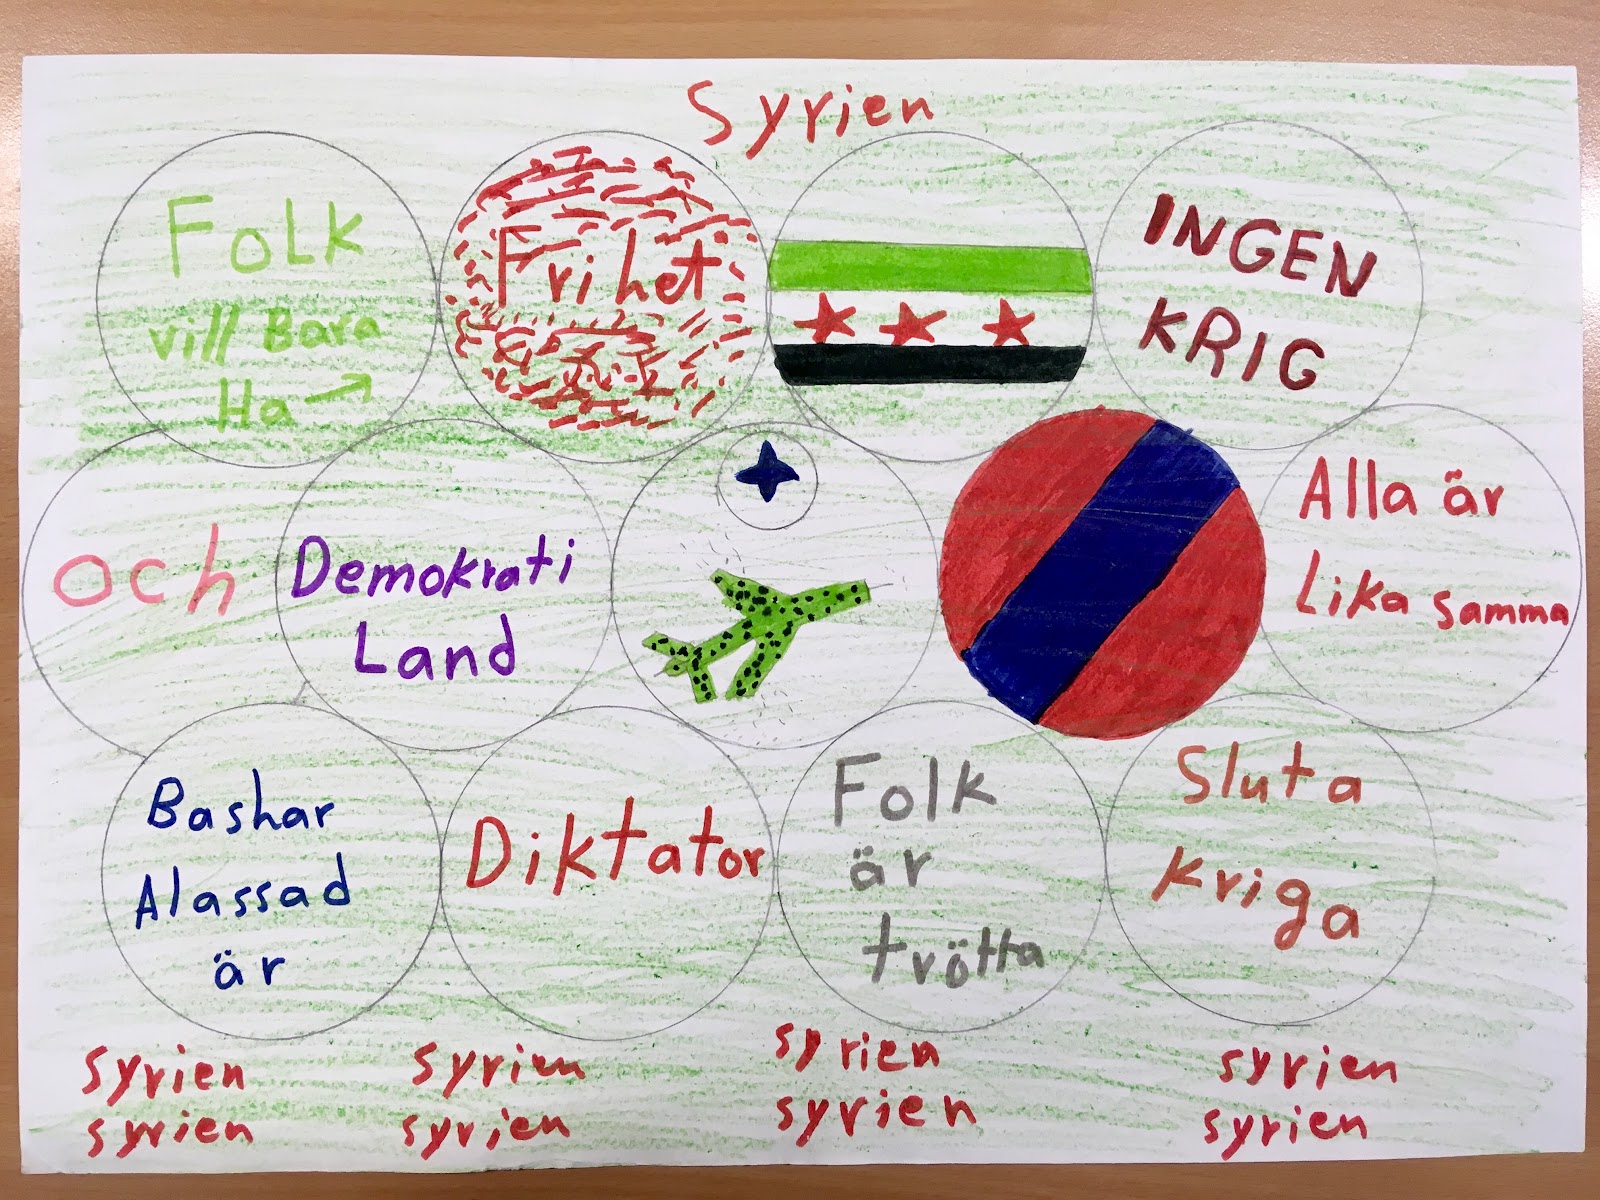 Syrien
Folk
vill Bara
Ha
Frihet
INGEN
KRIG
och
Demokrati
Land
Alla är
Lika samma
Bashar
Alassad
är
Diktator
Folk
är
trötta
Sluta
Kriga
syrien syrien syrien syrien
syrien syrien syrien syrien